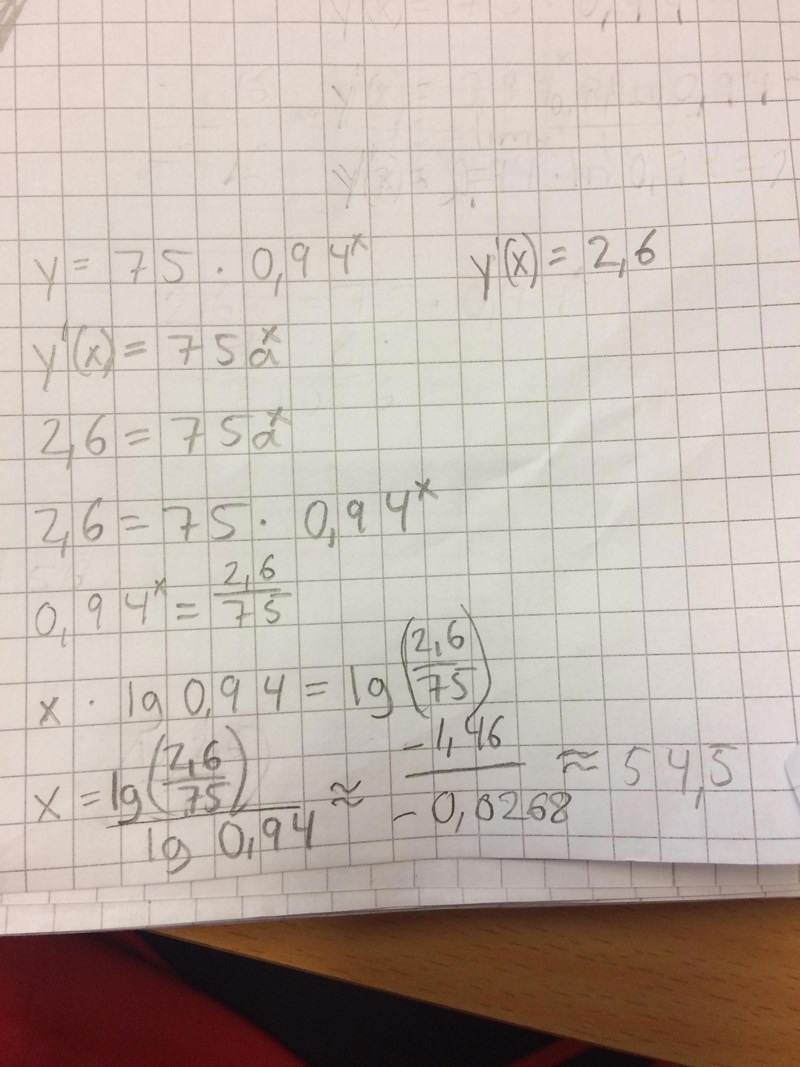 y = 75 · 0,94^x    y'(x) = 2,6
y'(x) = 75a^x
2,6 = 75a^x
2,6 = 75 · 0,94^x
0,94^x = 2,6/75
x · lg 0,94 = lg(2,6/75)
x = lg(2,6/75)/lg 0,94 ≈ -1,46/-0,0268 ≈ 54,5